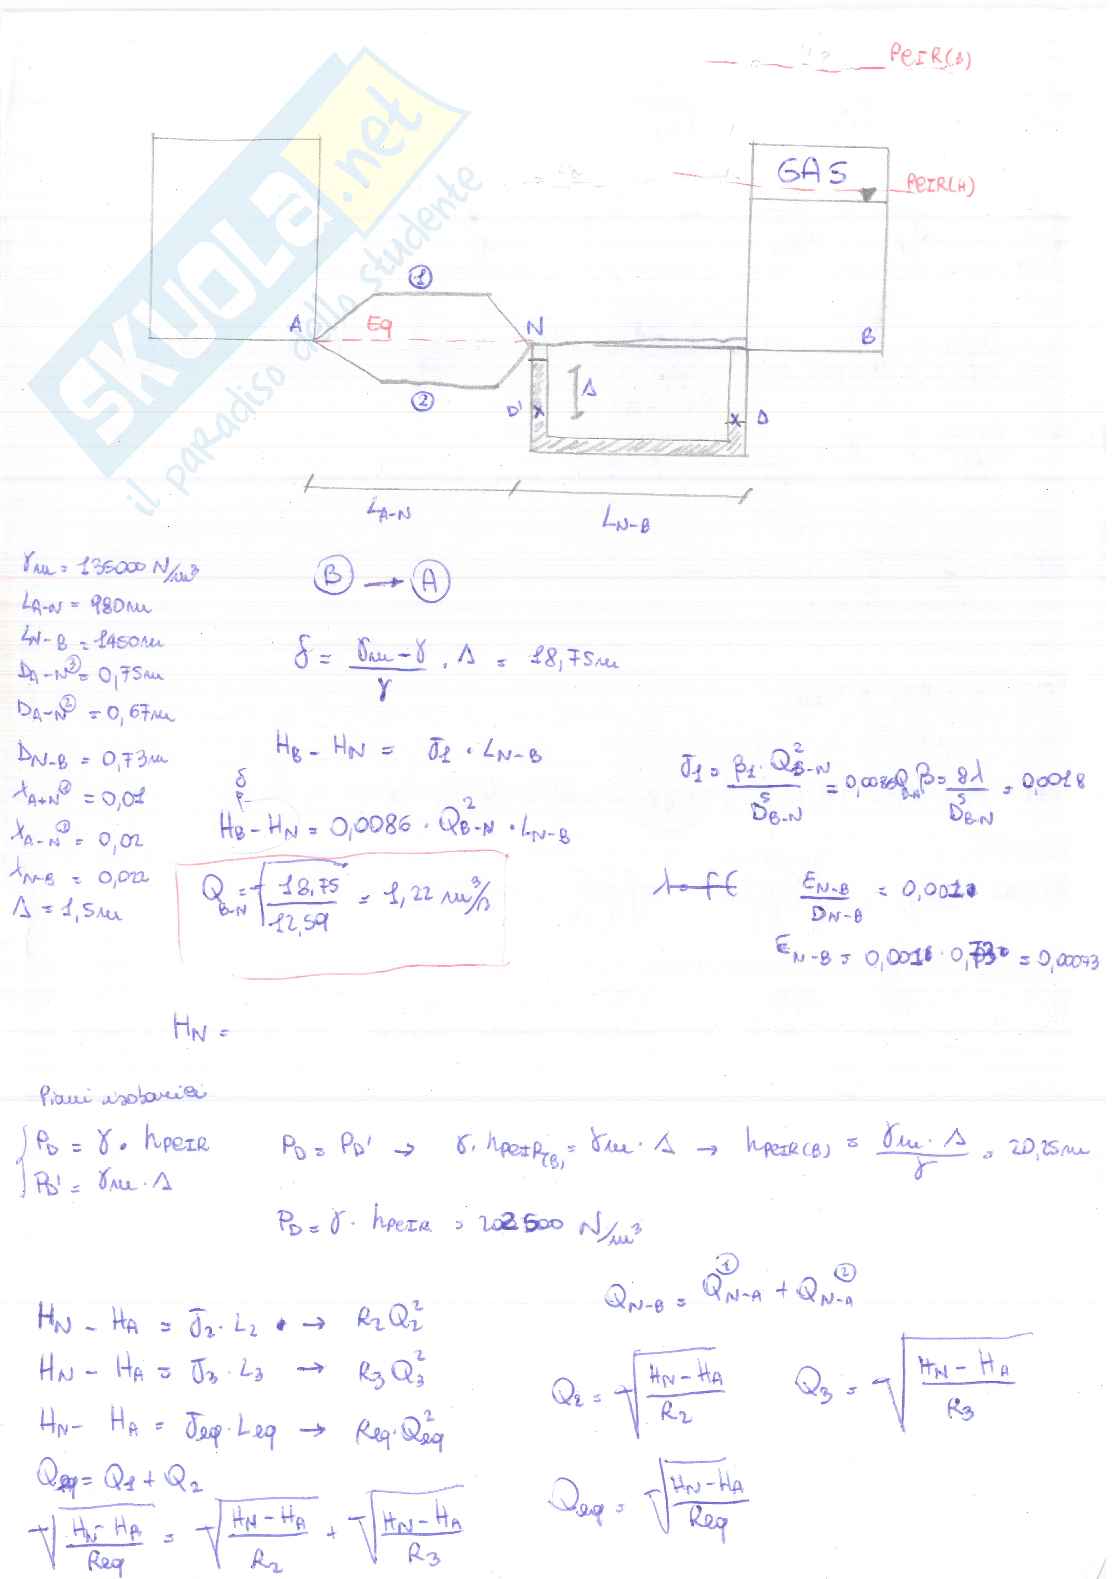 PCIR(B)
GAS
PCIR(A)
SKUOLA.net
il paradiso dello studente
1
A
Eq
N
B
2
D'
Δ
D
L A-N
L N-B
γm = 135000 N/m³
L A-N = 980m
L N-B = 1450m
D A-N ① = 0,75m
D A-N ② = 0,67m
D N-B = 0,73m
λ A-N = 0,01
λ A-N = 0,02
λ N-B = 0,022
Δ = 1,5m
B → A
δ = (γm - γ)/γ · Δ = 18,75m
H B - H N = J1 · L N-B
δ
H B - H N = 0,0086 · Q² B-N · L N-B
Q B-N = √(18,75/12,59) = 1,22 m³/s
J1 = β1 · Q² B-N / D⁵ B-N = 0,0086 Q
β = 8λ / D⁵ B-N = 0,0018
ε N-B / D N-B = 0,001
ε N-B = 0,001 · 0,73 = 0,00073
H N =
Piani isobarici
P D = γ · h PCIR
P D' = γm · Δ
P D = P D' → γ · h PCIR(B) = γm · Δ → h PCIR(B) = γm · Δ / γ = 20,25m
P D = γ · h PCIR = 202500 N/m³
Q N-B = Q N-A ① + Q N-A ②
H N - H A = J2 · L2 → R2 Q2²
H N - H A = J3 · L3 → R3 Q3²
H N - H A = Jeq · Leq → Req · Qeq²
Qeq = Q1 + Q2
Q2 = √((H N - H A)/R2)
Q3 = √((H N - H A)/R3)
Qeq = √((H N - H A)/Req)
√((H N - H A)/Req) = √((H N - H A)/R2) + √((H N - H A)/R3)